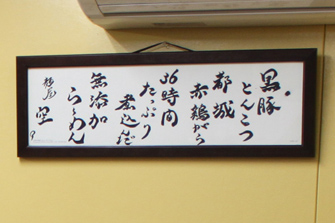 黒豚
とんこつ
都城
赤鶏がら
36時間
たっぷり
煮込んだ
無添加
らーめん
空